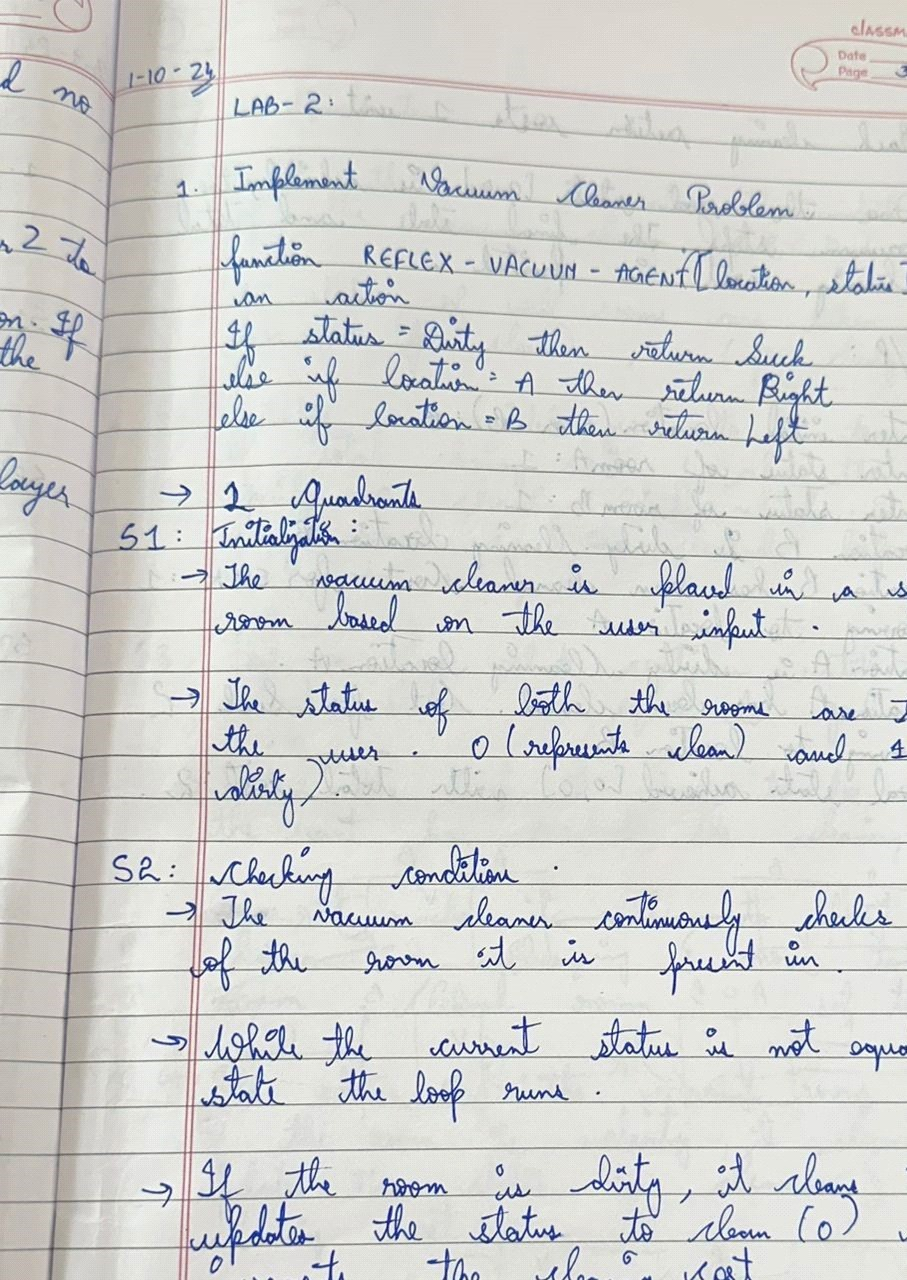 classm
Date
Page 3
d no
r 2 to
on. If
the
layer
1-10-24
LAB-2:
1. Implement Vacuum Cleaner Problem.
function REFLEX-VACUUM-AGENT[location, status]
an action
If status = Dirty then return Suck
else if location = A then return Right
else if location = B then return Left
→ 2 Quadrants
S1: Initialization:
→ The vacuum cleaner is placed in a s
room based on the user input.
→ The status of both the rooms are
the user. 0 (represents clean) and 1
dirty).
S2: Checking condition.
→ The vacuum cleaner continuously checks
of the room it is present in.
→ While the current status is not equa
state the loop runs.
→ If the room is dirty, it cleans
updates the status to clean (0)
the cost